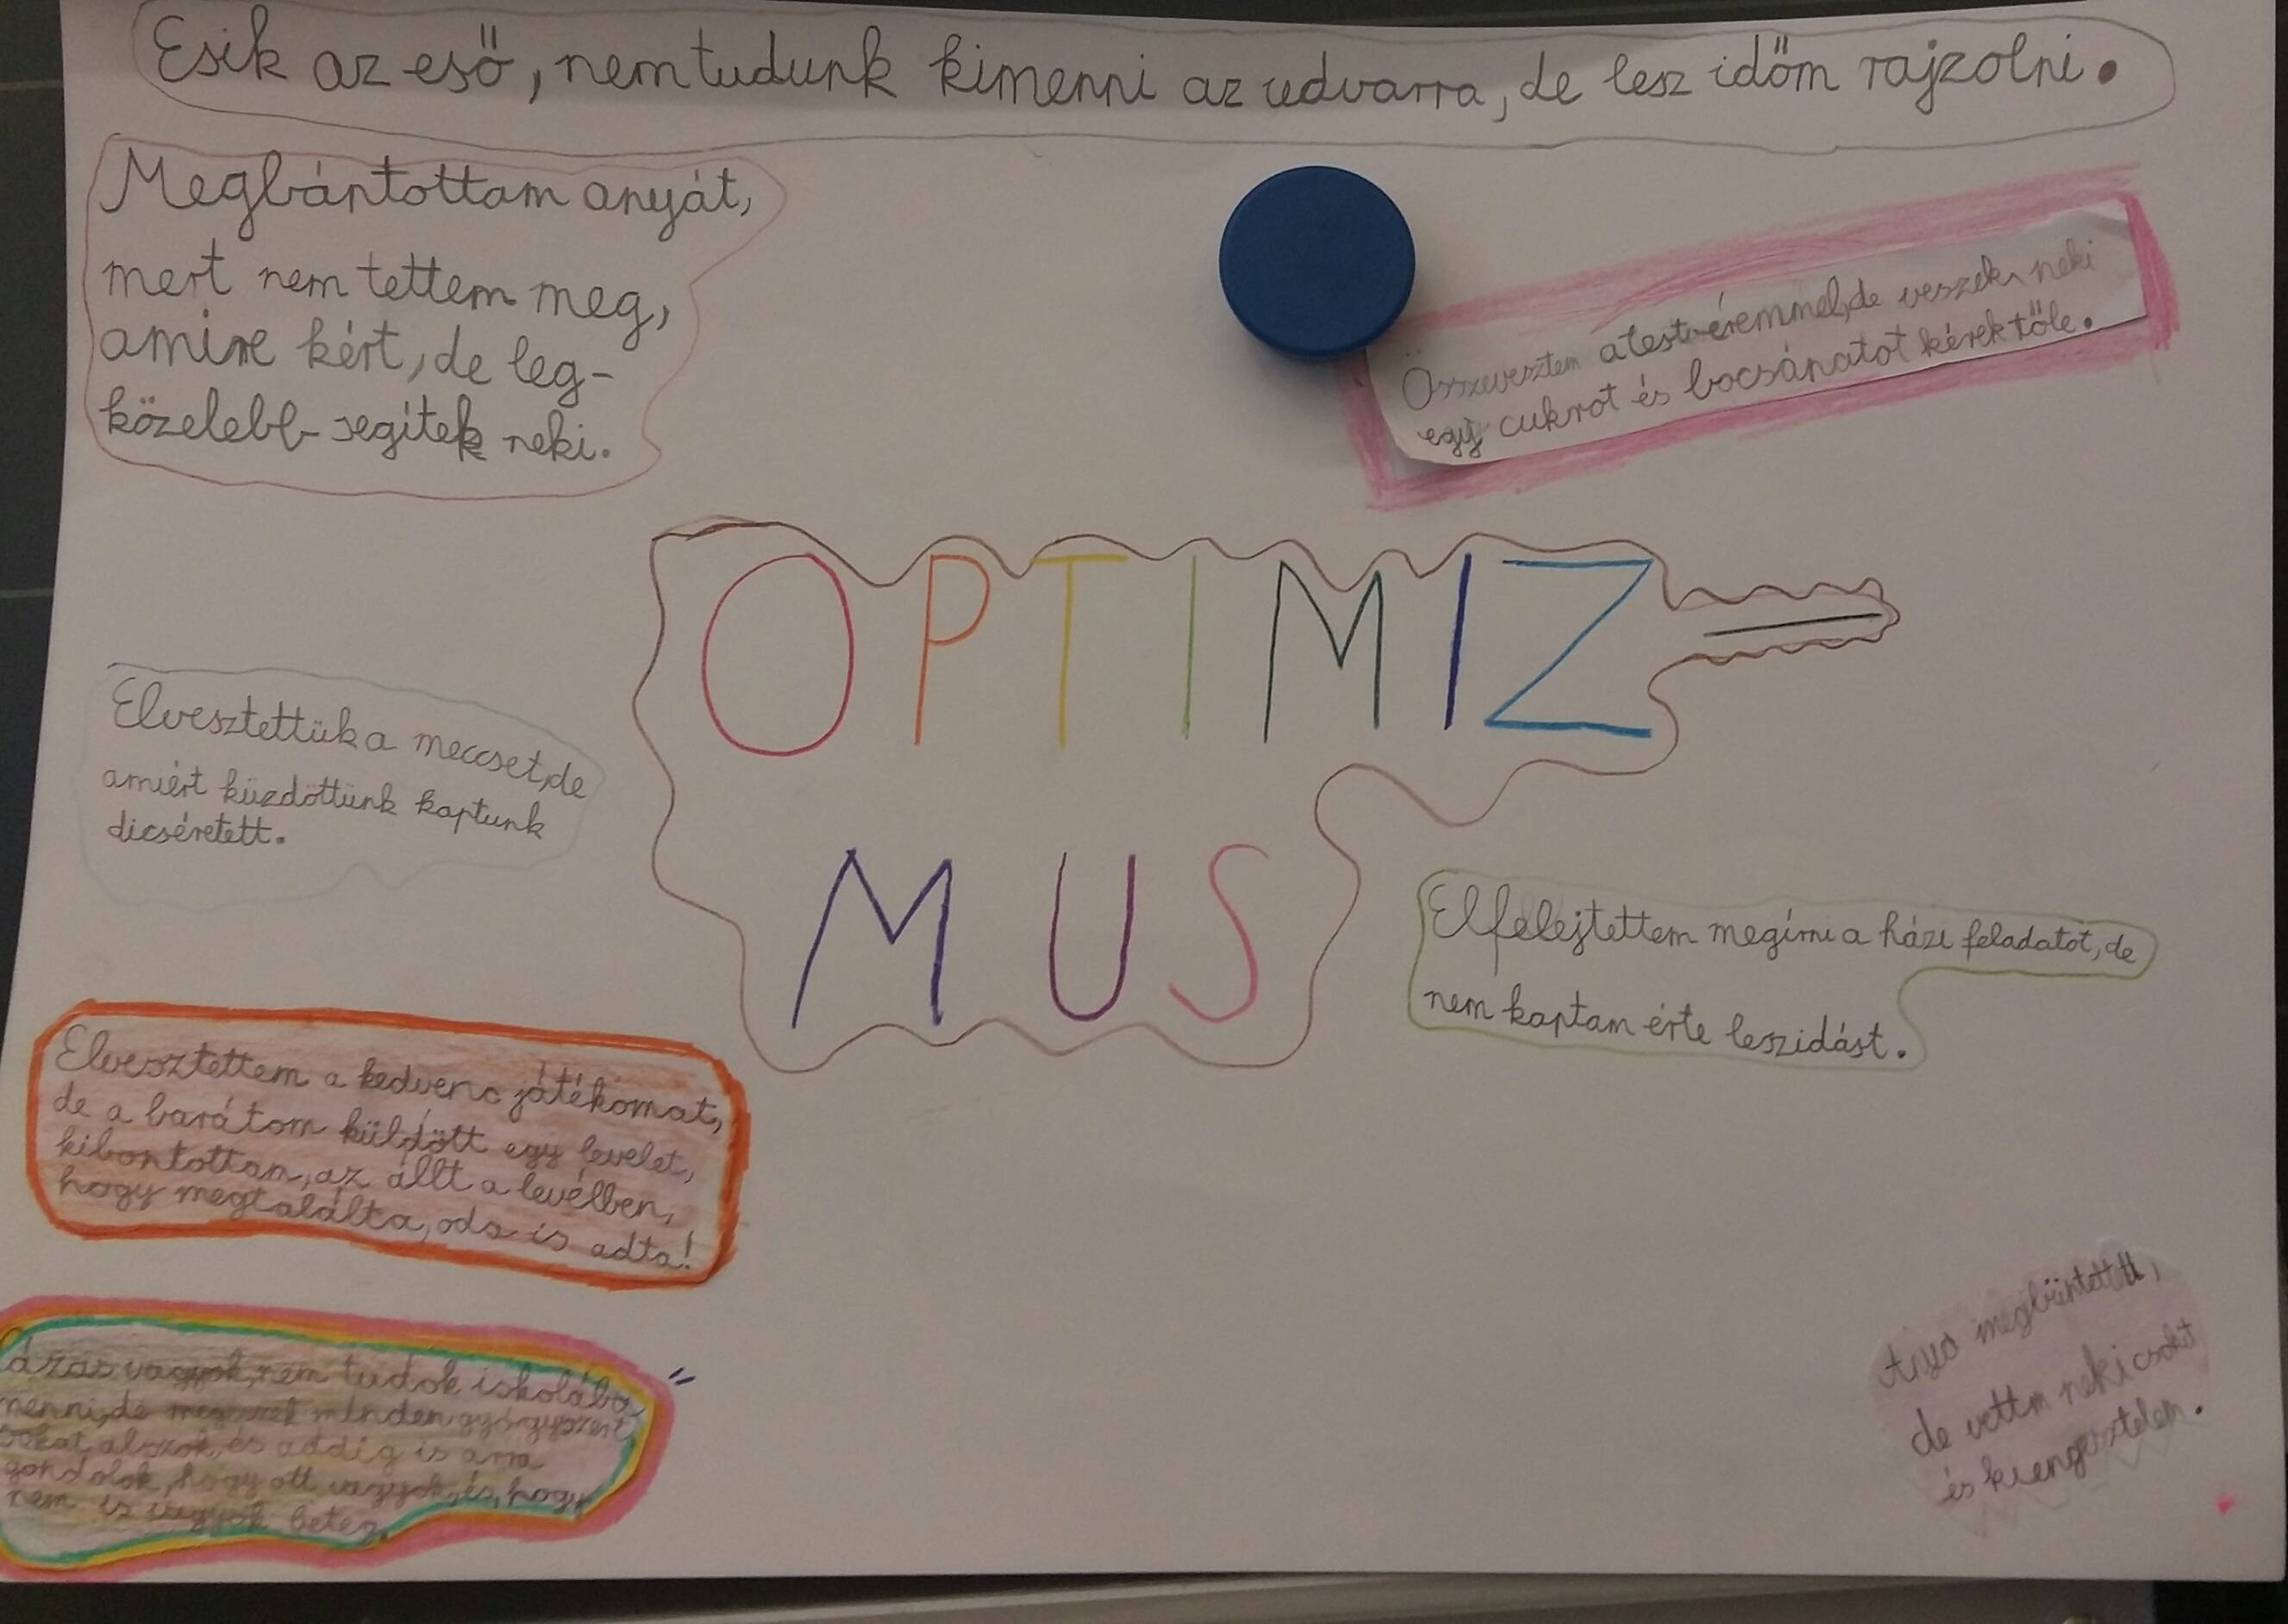 Esik az eső, nem tudunk kimenni az udvarra, de lesz időm rajzolni.
Megbántottam anyát,
mert nem tettem meg,
amire kért, de leg-
közelebb segítek neki.
Összevesztem a testvéremmel, de veszek neki
egy cukrot és bocsánatot kérek tőle.
OPTIMIZ
MUS
Elvesztettük a meccset, de
amiért küzdöttünk kaptunk
dicséretett.
Elfelejtettem megírni a házi feladatot, de
nem kaptam érte leszidást.
Elvesztettem a kedvenc játékomat,
de a barátom küldött egy levelet,
kibontottam, az állt a levélben,
hogy megtalálta, oda is adta!
vagyok, nem tudok iskolába
menni, de minden gyógyszert,
sokat alszok, és addig is arra
gondolok, hogy ott vagyok, és, hogy
nem is vagyok beteg.
Anya megbüntetett,
de vettm neki csokit
és kiengesztelem.